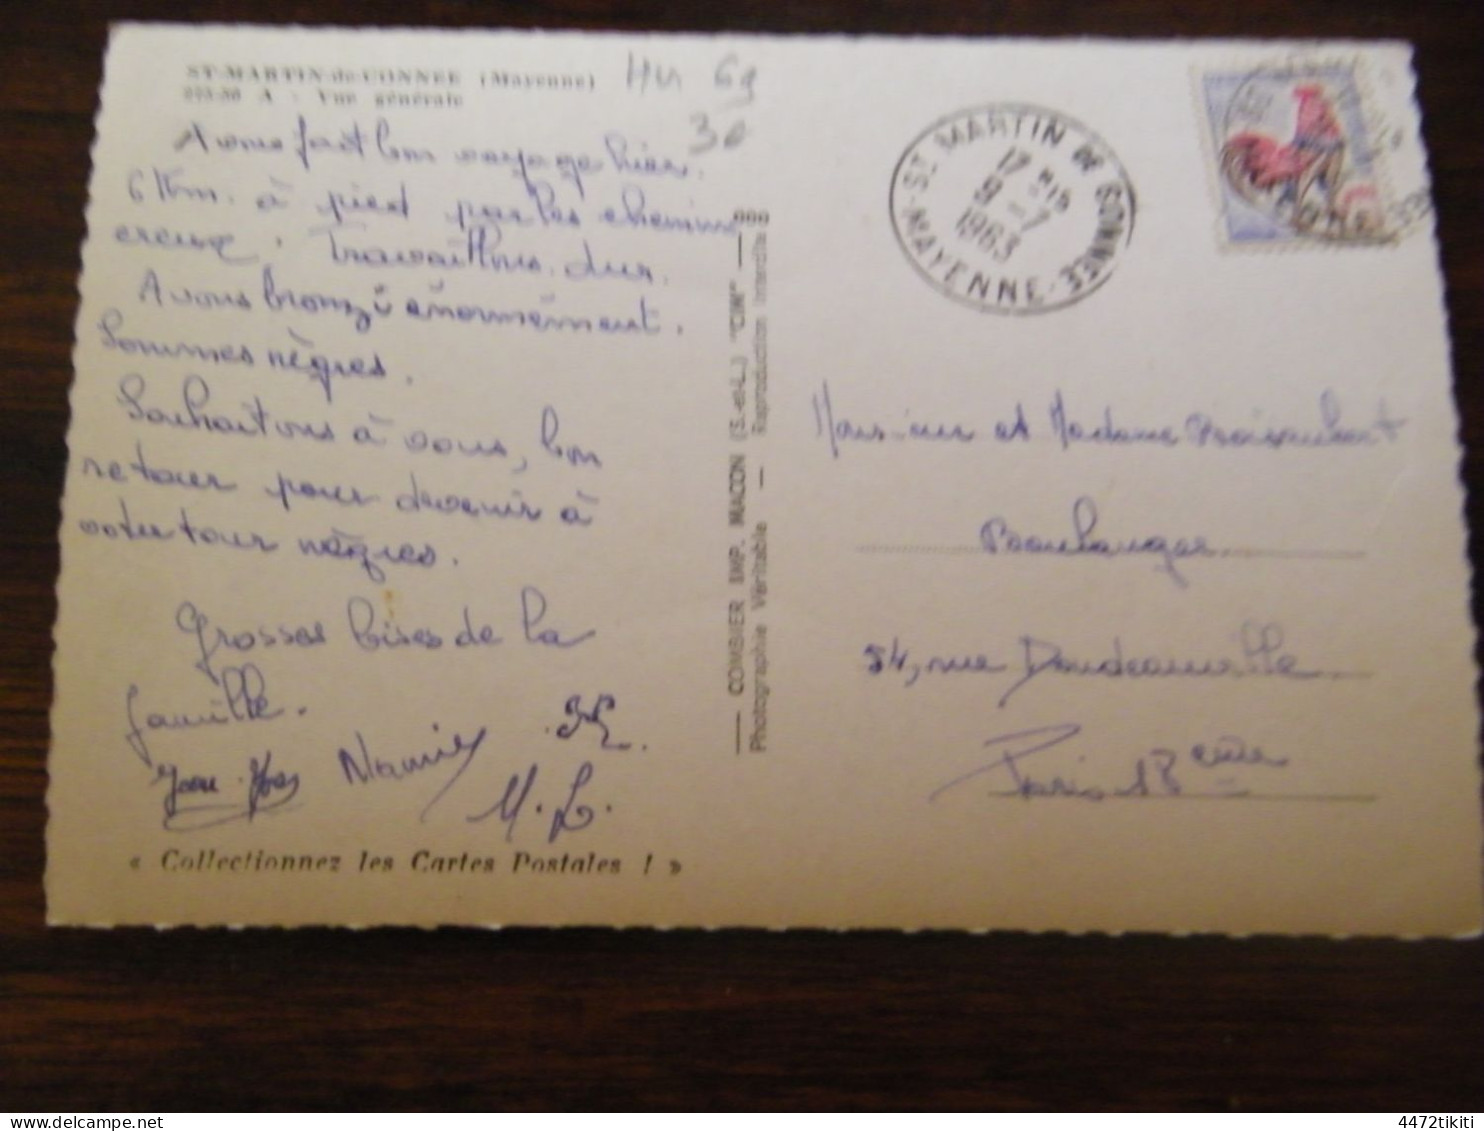 ST-MARTIN-de-CONNEE (Mayenne)
293-50 A - Vue générale
HU 69
30
Avons fait bon voyage hier.
6 Km. à pied par les chemins
creux. Travaillons dur.
Avons bronzé énormément.
Sommes nègres.
Souhaitons à vous, bon
retour pour devenir à
votre tour nègres.
Grosses bises de la
famille.
Jean-Yves
M.L.
« Collectionnez les Cartes Postales ! »
COMBIER IMP. MACON (S.-et-L.) "CIM"
Photographie Véritable — Reproduction interdite
ST MARTIN DE CONNEE
17 H15
9 - 7
1963
MAYENNE
Monsieur et Madame
Boulanger
54, rue Doudeauville
Paris 18 ème
4472tikiti
delcampe.net